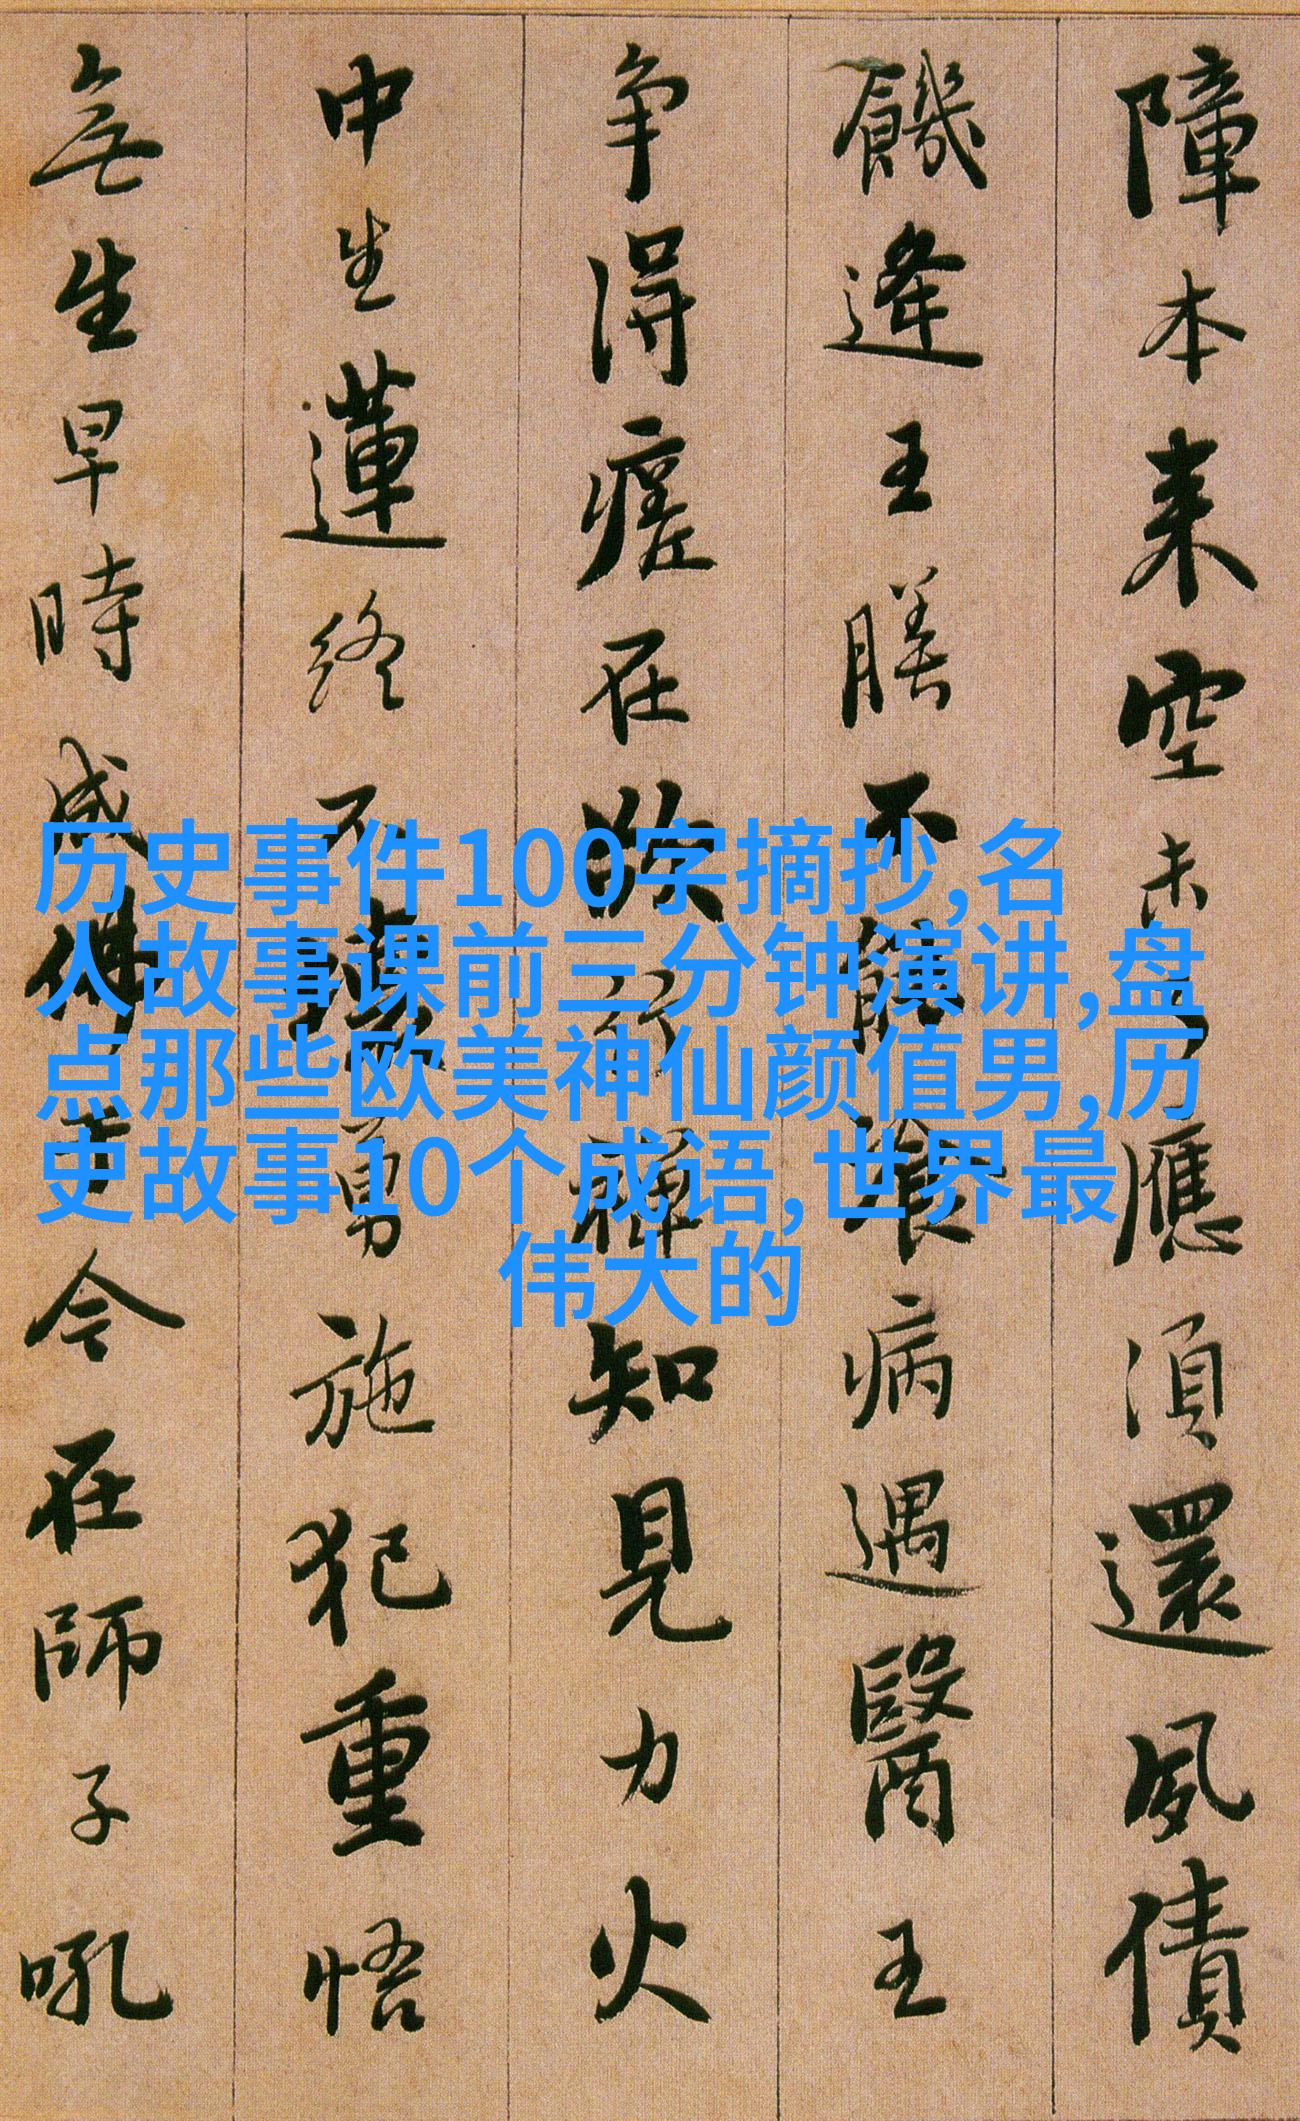 障本来空未了應湏還夙債
饑逢王膳不能飡病遇醫王
争得瘥在欲行禪知見力火
中生蓮終不壞勇施犯重悟
無生早時成佛于今在師子吼
历史事件100字摘抄,名
人故事课前三分钟演讲,盘
点那些欧美神仙颜值男,历
史故事10个成语,世界最
伟大的